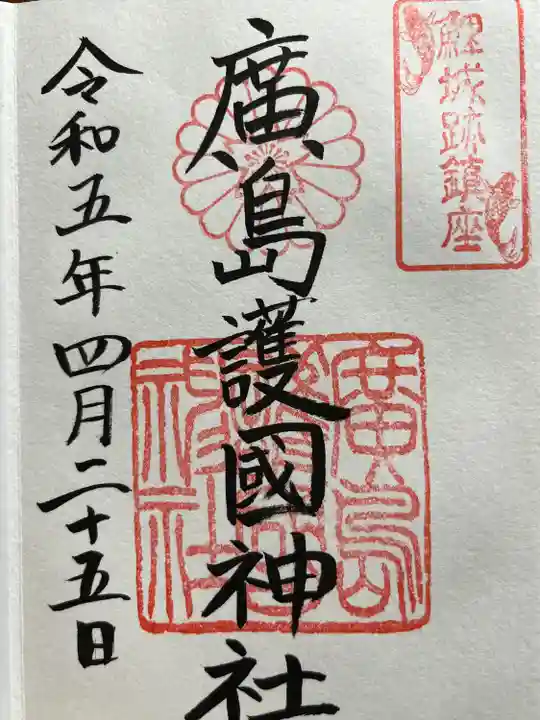 鯉城跡鎮座
廣島護國神社
廣島護國神社
令和五年四月二十五日